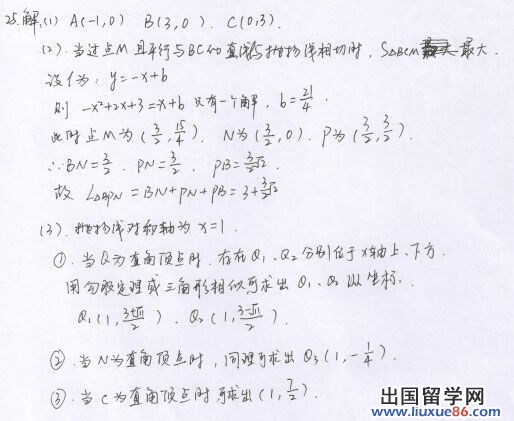 25.解(1) A(-1,0) B(3,0). C(0,3).
(2).当过点M且平行与BC的直线与抛物线相切时,S△BCM 最大.
设 为: y=-x+b
则 -x²+2x+3=-x+b 只有一个解, b=21/4.
此时点M为(3/2, 15/4). N为(3/2,0). P为(3/2,3/2).
∴BN=3/2. PN=3/2. PB=3/2√2
故 L△BPN=BN+PN+PB=3+3/2√2
(3).抛物线对称轴为x=1.
①.当Q为直角顶点时.存在Q₁、Q₂分别位于x轴上、下方.
用勾股定理或三角形相似可求出Q₁、Q₂ 坐标.
Q₁(1, (3+√11)/2). Q₂(1, (3-√11)/2).
②.当N为直角顶点时,同理可求出Q₃(1,-1/4).
③.当C为直角顶点时可求出(1,7/2).
出国留学网
www.liuxue86.com